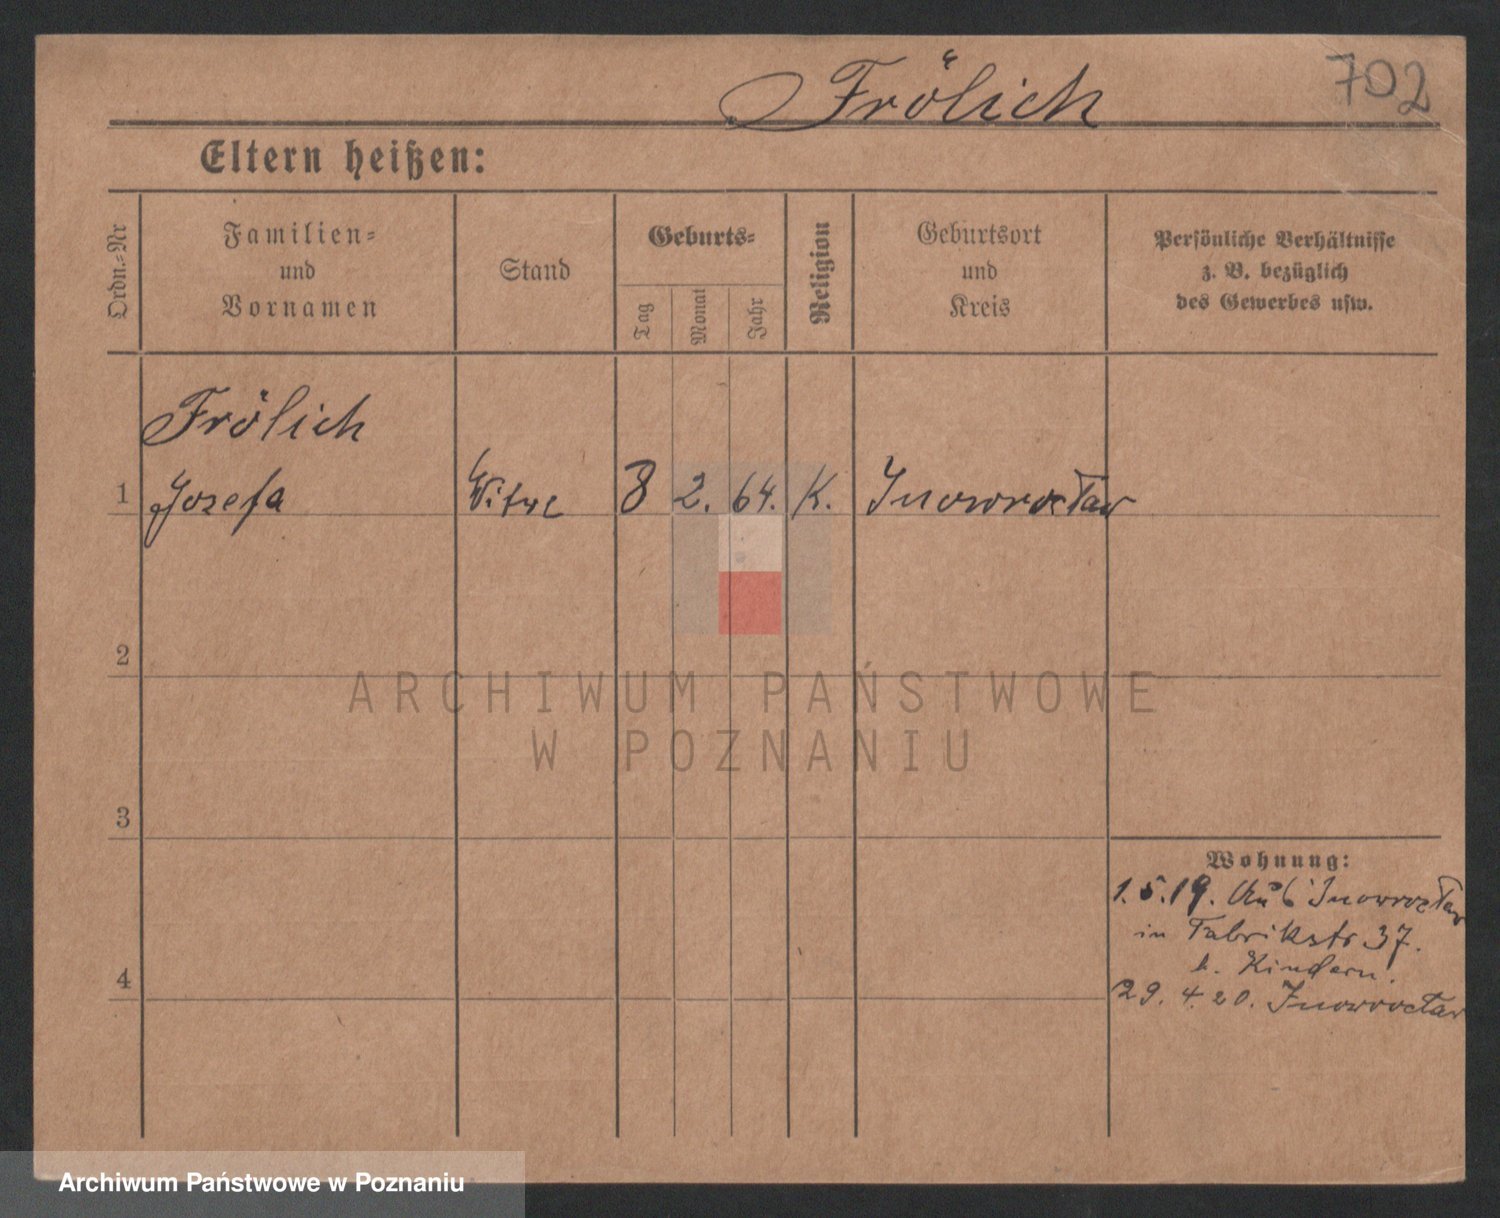 Frölich
702
Eltern heißen:
Ordn.=Nr
Familien=
und
Vornamen
Stand
Geburts=
Tag
Monat
Jahr
Religion
Geburtsort
und
Kreis
Persönliche Verhältnisse
z. B. bezüglich
des Gewerbes usw.
Frölich
1 Josefa Witwe 8 2. 64. K. Inowrocław
2
ARCHIWUM PAŃSTWOWE
W POZNANIU
3
Wohnung:
1.5.19. Aus Inowrocław
in Fabrikstr 37.
b. Kindern.
4
29. 4. 20. Inowrocław
Archiwum Państwowe w Poznaniu